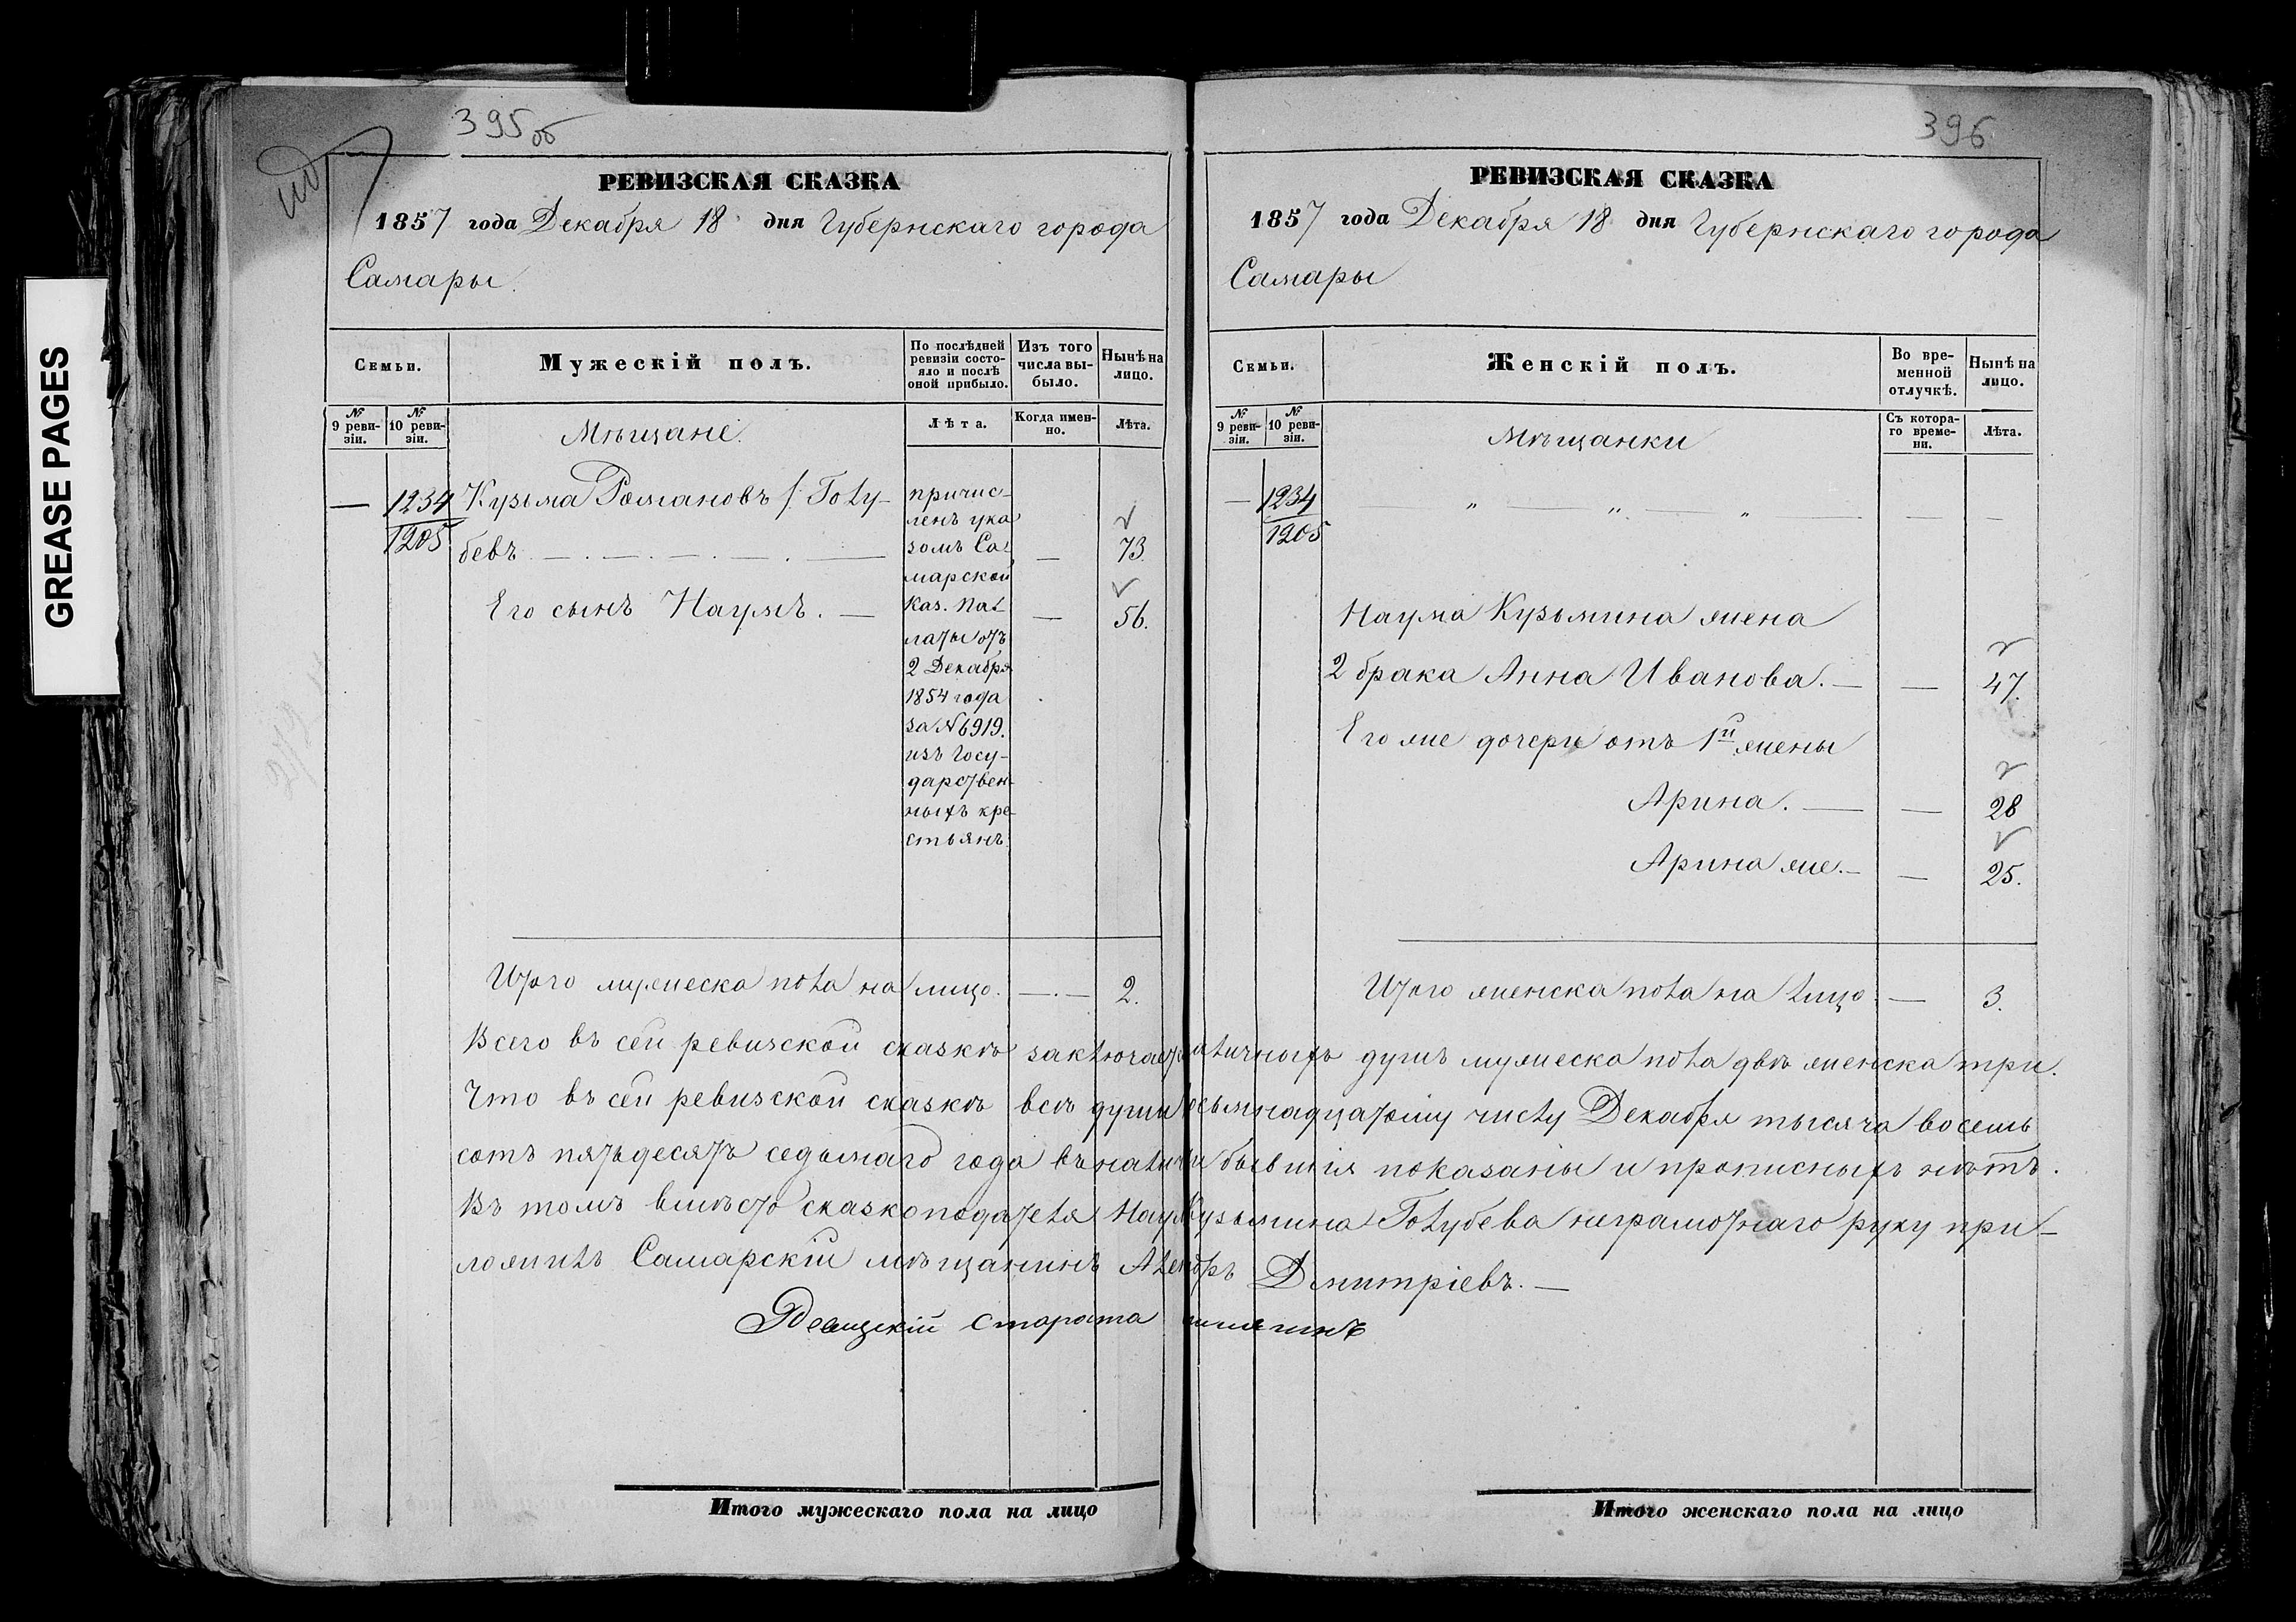 GREASE PAGES
395 об
РЕВИЗСКАЯ СКАЗКА
1857 года Декабря 18 дня Губернскаго города
Самары.
Семьи.
Мужескій полъ.
По послѣдней ревизіи состо-
яло и послѣ оной прибыло.
Изъ того числа вы-
было.
Нынѣ на лицо.
№ 9 реви-
зіи.
№ 10 реви-
зіи.
Мѣщане.
Лѣта.
Когда имен-
но.
Лѣта.
— 1234 Кузьма Романовъ /: Голу-
1205 бевъ — 73.
Его сынъ Наумъ. — 56.
причис-
ленъ ука
зомъ Са-
марской
Каз. Па-
латы отъ
2 Декабря
1854 года
за №6919.
изъ Госу-
дарствен-
ныхъ кре-
стьянъ.
Итого мужеска пола на лицо. — 2.
396
РЕВИЗСКАЯ СКАЗКА
1857 года Декабря 18 дня Губернскаго города
Самары
Семьи.
Женскій полъ.
Во вре-
менной
отлучкѣ.
Нынѣ на
лицо.
№ 9 реви-
зіи.
№ 10 реви-
зіи.
Мѣщанки
Съ котора-
го време-
ни.
Лѣта.
— 1234 — „ — „ — „ —
1205
Наума Кузьмина жена
2 брака Анна Иванова. — — 47.
Его же дочери отъ 1й жены
Арина. — — 28
Арина же. — — 25.
Итого женска пола на лицо — 3.
Всего въ сей ревизской сказкѣ заключается личныхъ душъ мужеска пола двѣ женска три.
Что въ сей ревизской сказкѣ всѣ души осьмнадцатому числу Декабря тысяча восемь
сотъ пятьдесятъ седьмаго года въ наличіи бывшія показаны и прописныхъ нѣтъ.
Въ томъ вмѣсто сказкоподателя Наума Кузьмина Голубева неграмотнаго руку при-
ложилъ Самарскій мѣщанинъ Александръ Дмитріевъ. —
староста
Итого мужескаго пола на лицо
Итого женскаго пола на лицо